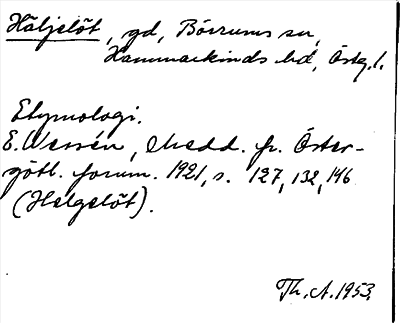 Häljelöt, gd, Börrums sn,
Hammarkinds hd, Östg.l.
Etymologi.
E. Wessén, Medd. fr. Öster-
götl. fornm. 1921, s. 127, 132, 146
(Helgelöt).
Th. A. 1953.